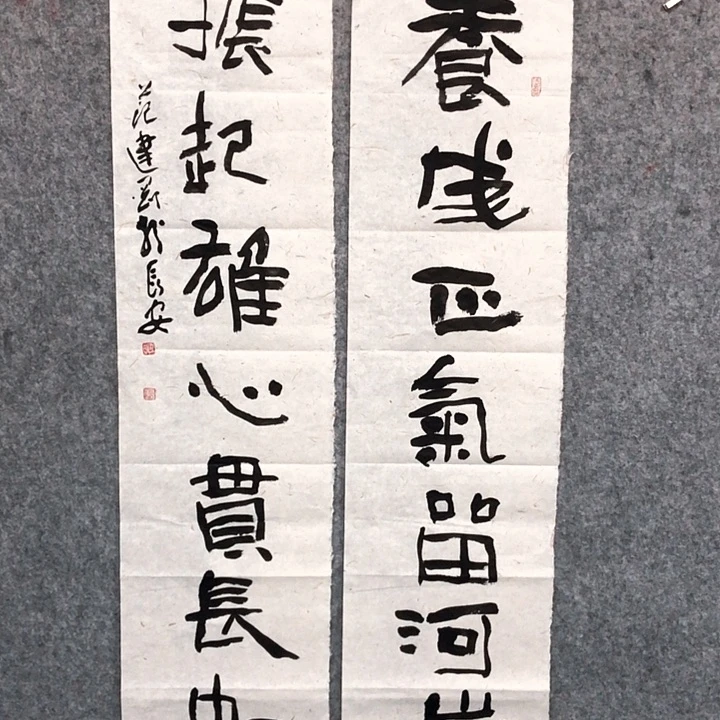 養成正氣留河
振起雄心貫長
范達於長安